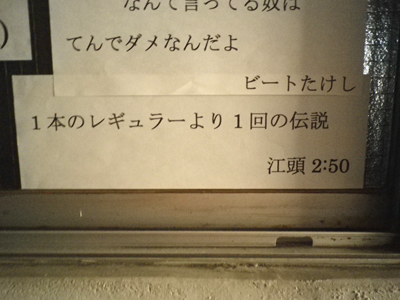 なんて言ってる奴は
てんでダメなんだよ
ビートたけし
1本のレギュラーより1回の伝説
江頭 2:50
)